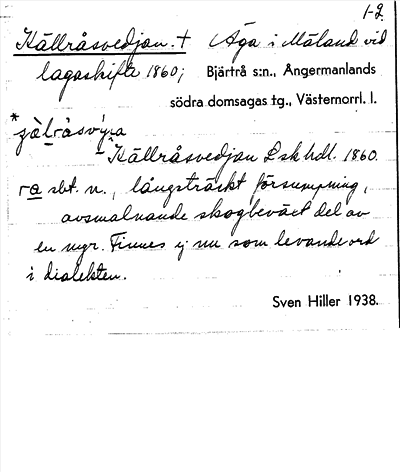 1-2.
Källråsvedjan. † Äga i Måland vid
lagaskifte 1860; Bjärtrå s:n., Ångermanlands
södra domsagas tg., Västernorrl. l.
Källråsvedjan Lskhdl. 1860.
ra sbt. n., långsträckt försumpning,
avsmalnande skogbeväxt del av
en myr. Finnes ej nu som levande ord
i dialekten.
Sven Hiller 1938.